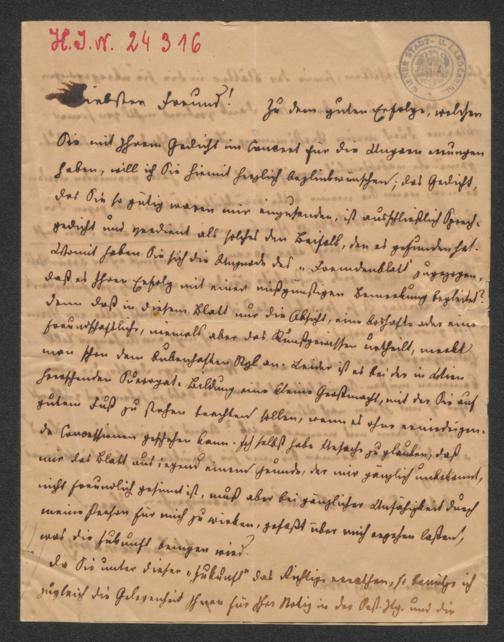 H.I.N. 24316
WIENER STADT- U. LANDESBIBL.
Liebster Freund! Zu dem guten Erfolge, welchen
Sie mit Ihrem Gedicht im Concert für die Ungarn errungen
haben, will ich Sie hiemit herzlich beglückwünschen; das Gedicht,
das Sie so gütig waren mir einzusenden, ist ausschließlich Sprech-
gedicht und verdient als solches den Beifall, den es gefunden hat.
Womit haben Sie sich die Ungnade des „Fremdenblatt" zugezogen,
daß es Ihren Erfolg mit einer mißgünstigen Bemerkung begleitet?
denn daß in diesem Blatt nur die Absicht, eine boshafte oder eine
freundschaftliche, niemals aber das Kunstgewissen urtheilt, merkt
man schon dem bubenhaften Styl an. Leider ist es bei der in Wien
herrschenden Bildung eine kleine Großmacht, mit der Sie auf
gutem Fuß zu stehen trachten sollen, wenn es ohne erniedrigen-
de Concessionen geschehen kann. Ich selbst habe Ursache zu glauben, daß
mir das Blatt aus irgend einem Grunde, der mir gänzlich unbekannt,
nicht freundlich gesinnt ist, muß aber bei gänzlicher Unfähigkeit durch
meine Person für mich zu wirken, gefaßt über mich ergehen lassen,
was die Zukunft bringen wird.
Da Sie unter dieser „Zukunft" das Richtige errathen, so benütze ich
zugleich die Gelegenheit Ihnen für Ihre Notiz in der und die